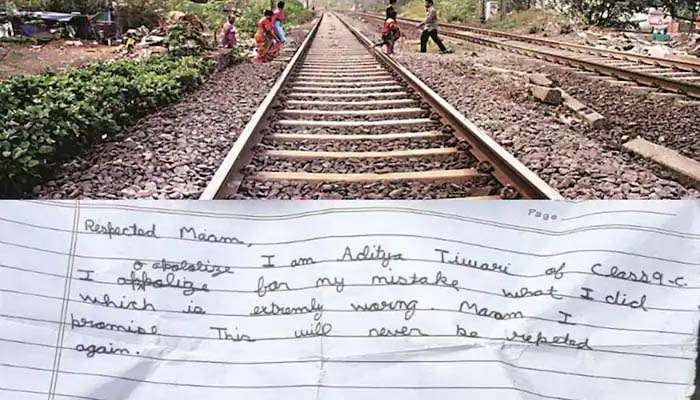 Page
Respected Maam,
I am Aditya Tiwari of Class 9-C.
apologize
I appolize for my mistake what I did
which is extremly worng. Maam I
promise This will never be repeted
again.